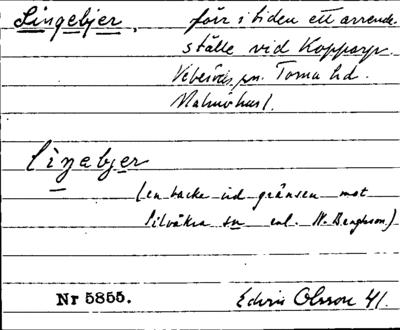 Lingebjer, förr i tiden ett arrende-
ställe vid Kopparp.
Veberöds sn. Torna hd.
Malmöhus l.
Lingebjer
(en backe vid gränsen mot
Silvåkra sn enl. N. Bengtsson)
Nr 5855. Edvin Olsson 41.